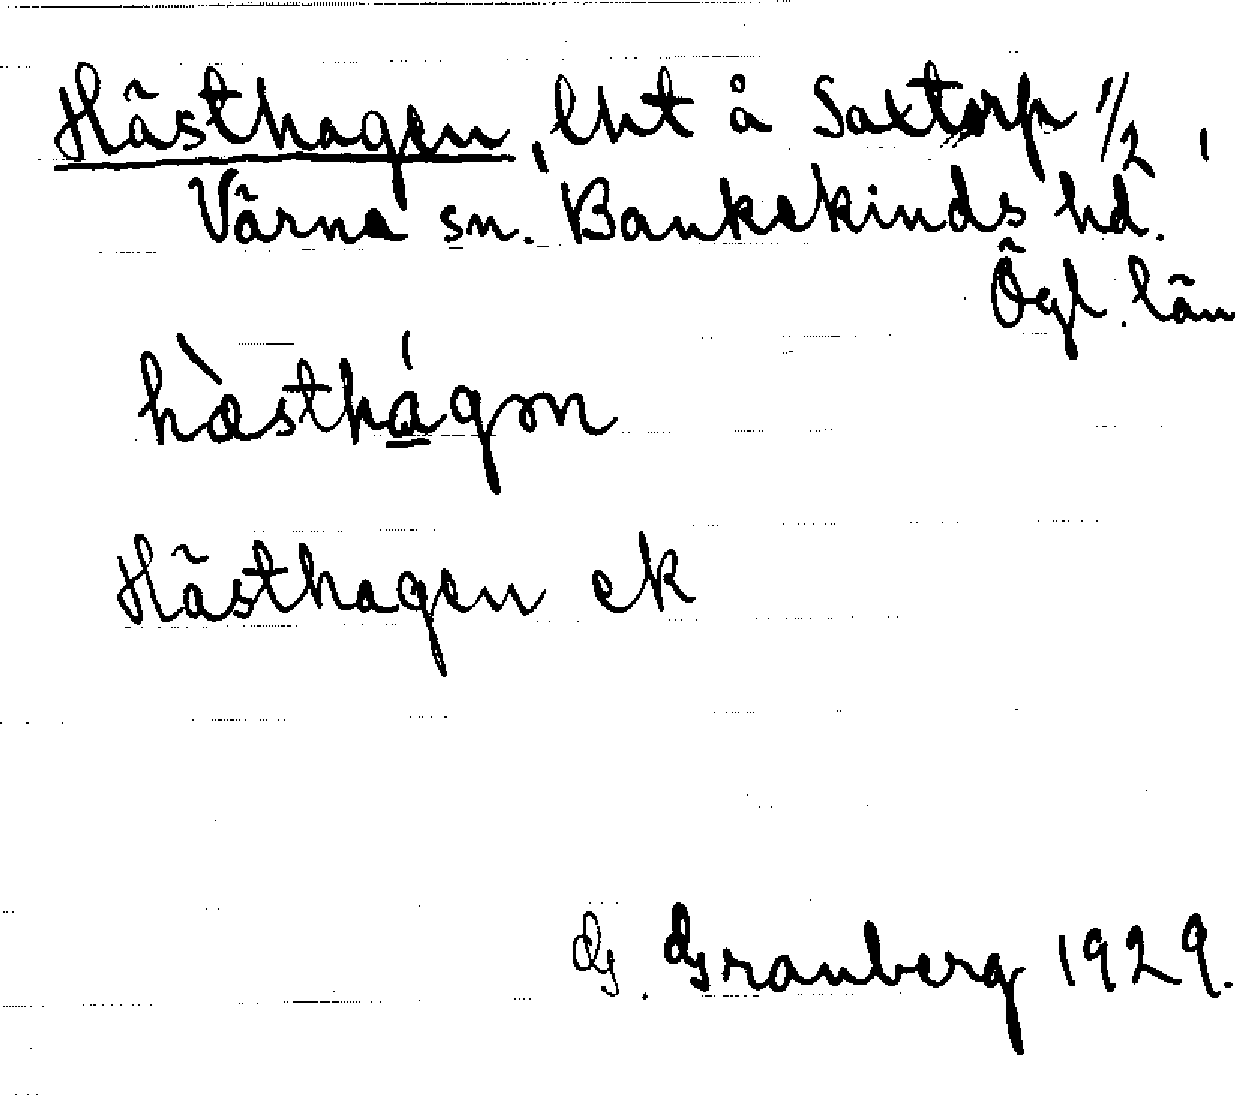 Hästhagen, lht å Saxtorp 1/2,
Värna sn. Bankekinds hd.
Ögl. län
hὰsthágon
Hästhagen ek
G. Granberg 1929.